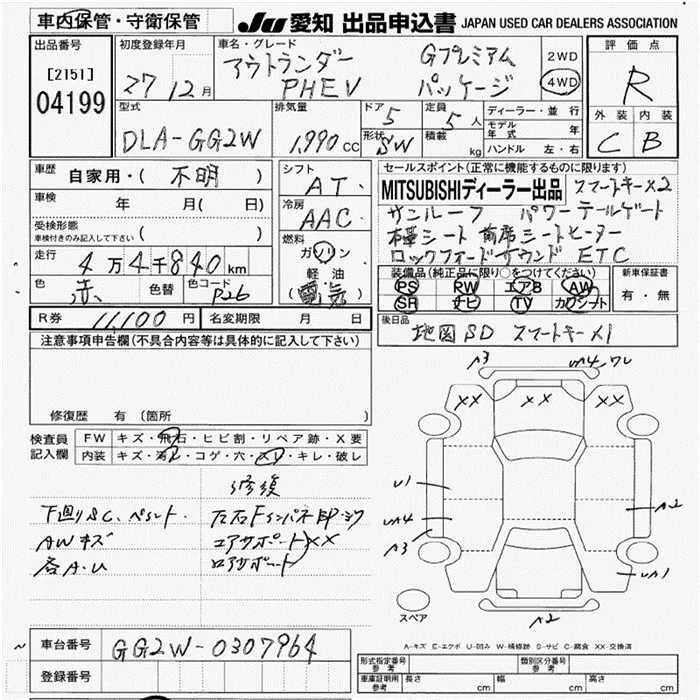 車内保管・守衛保管
JU 愛知 出品申込書 JAPAN USED CAR DEALERS ASSOCIATION
出品番号
[2151]
04199
初度登録年月
27 12月
車名・グレード
アウトランダー
PHEV
Gプレミアム
パッケージ
2WD
4WD
評価点
R
外装 内装
C B
型式
DLA-GG2W
排気量
1,990 cc
ドア
5
定員
5人
形状
SW
積載
kg
ディーラー・並行
モデル年式 年
ハンドル 左・右
車歴
自家用・( 不明 )
車検
年 月( 日)
受検形態
車検付きのみ記入して下さい ( )
走行
4万4千840km
色
赤
色替
色コード
P26
シフト
AT
冷房
AAC
燃料
ガソリン
軽油
(電気)
セールスポイント(正常に機能するものに限ります)
MITSUBISHIディーラー出品 スマートキー×2
サンルーフ パワーテールゲート
本革シート 前席シートヒーター
ロックフォードサウンド ETC
装備品(純正品に限り○をつけてください)
PS PW エアB AW
SR ナビ TV カワシート
新車保証書
有・無
R券 11,100円
名変期限 月 日
後日品
地図SD スマートキー×1
注意事項申告欄(不具合内容等は具体的に記入して下さい)
修復歴 有(箇所 )
検査員
記入欄
FW キズ・飛石・ヒビ割・リペア跡・X要
内装 キズ・汚レ・コゲ・穴・スリ・キレ・破レ
修復
下廻りSC、ペイント.
AWキズ
各A・U
左右Fインパネ
コアサポートXX
ロアサポート
A3
UA4・ワレ
XX
XX
XX
U1
UA4
A3
A2
UA1
A2
スペア
A-キズ E-エクボ U-凹み W-補修跡 S-サビ C-腐食 XX-交換済
車台番号
GG2W-0307964
登録番号
形式指定番号
参考
類別区分番号
参考
車庫証明用
参考
長さ cm
幅 cm
高さ cm